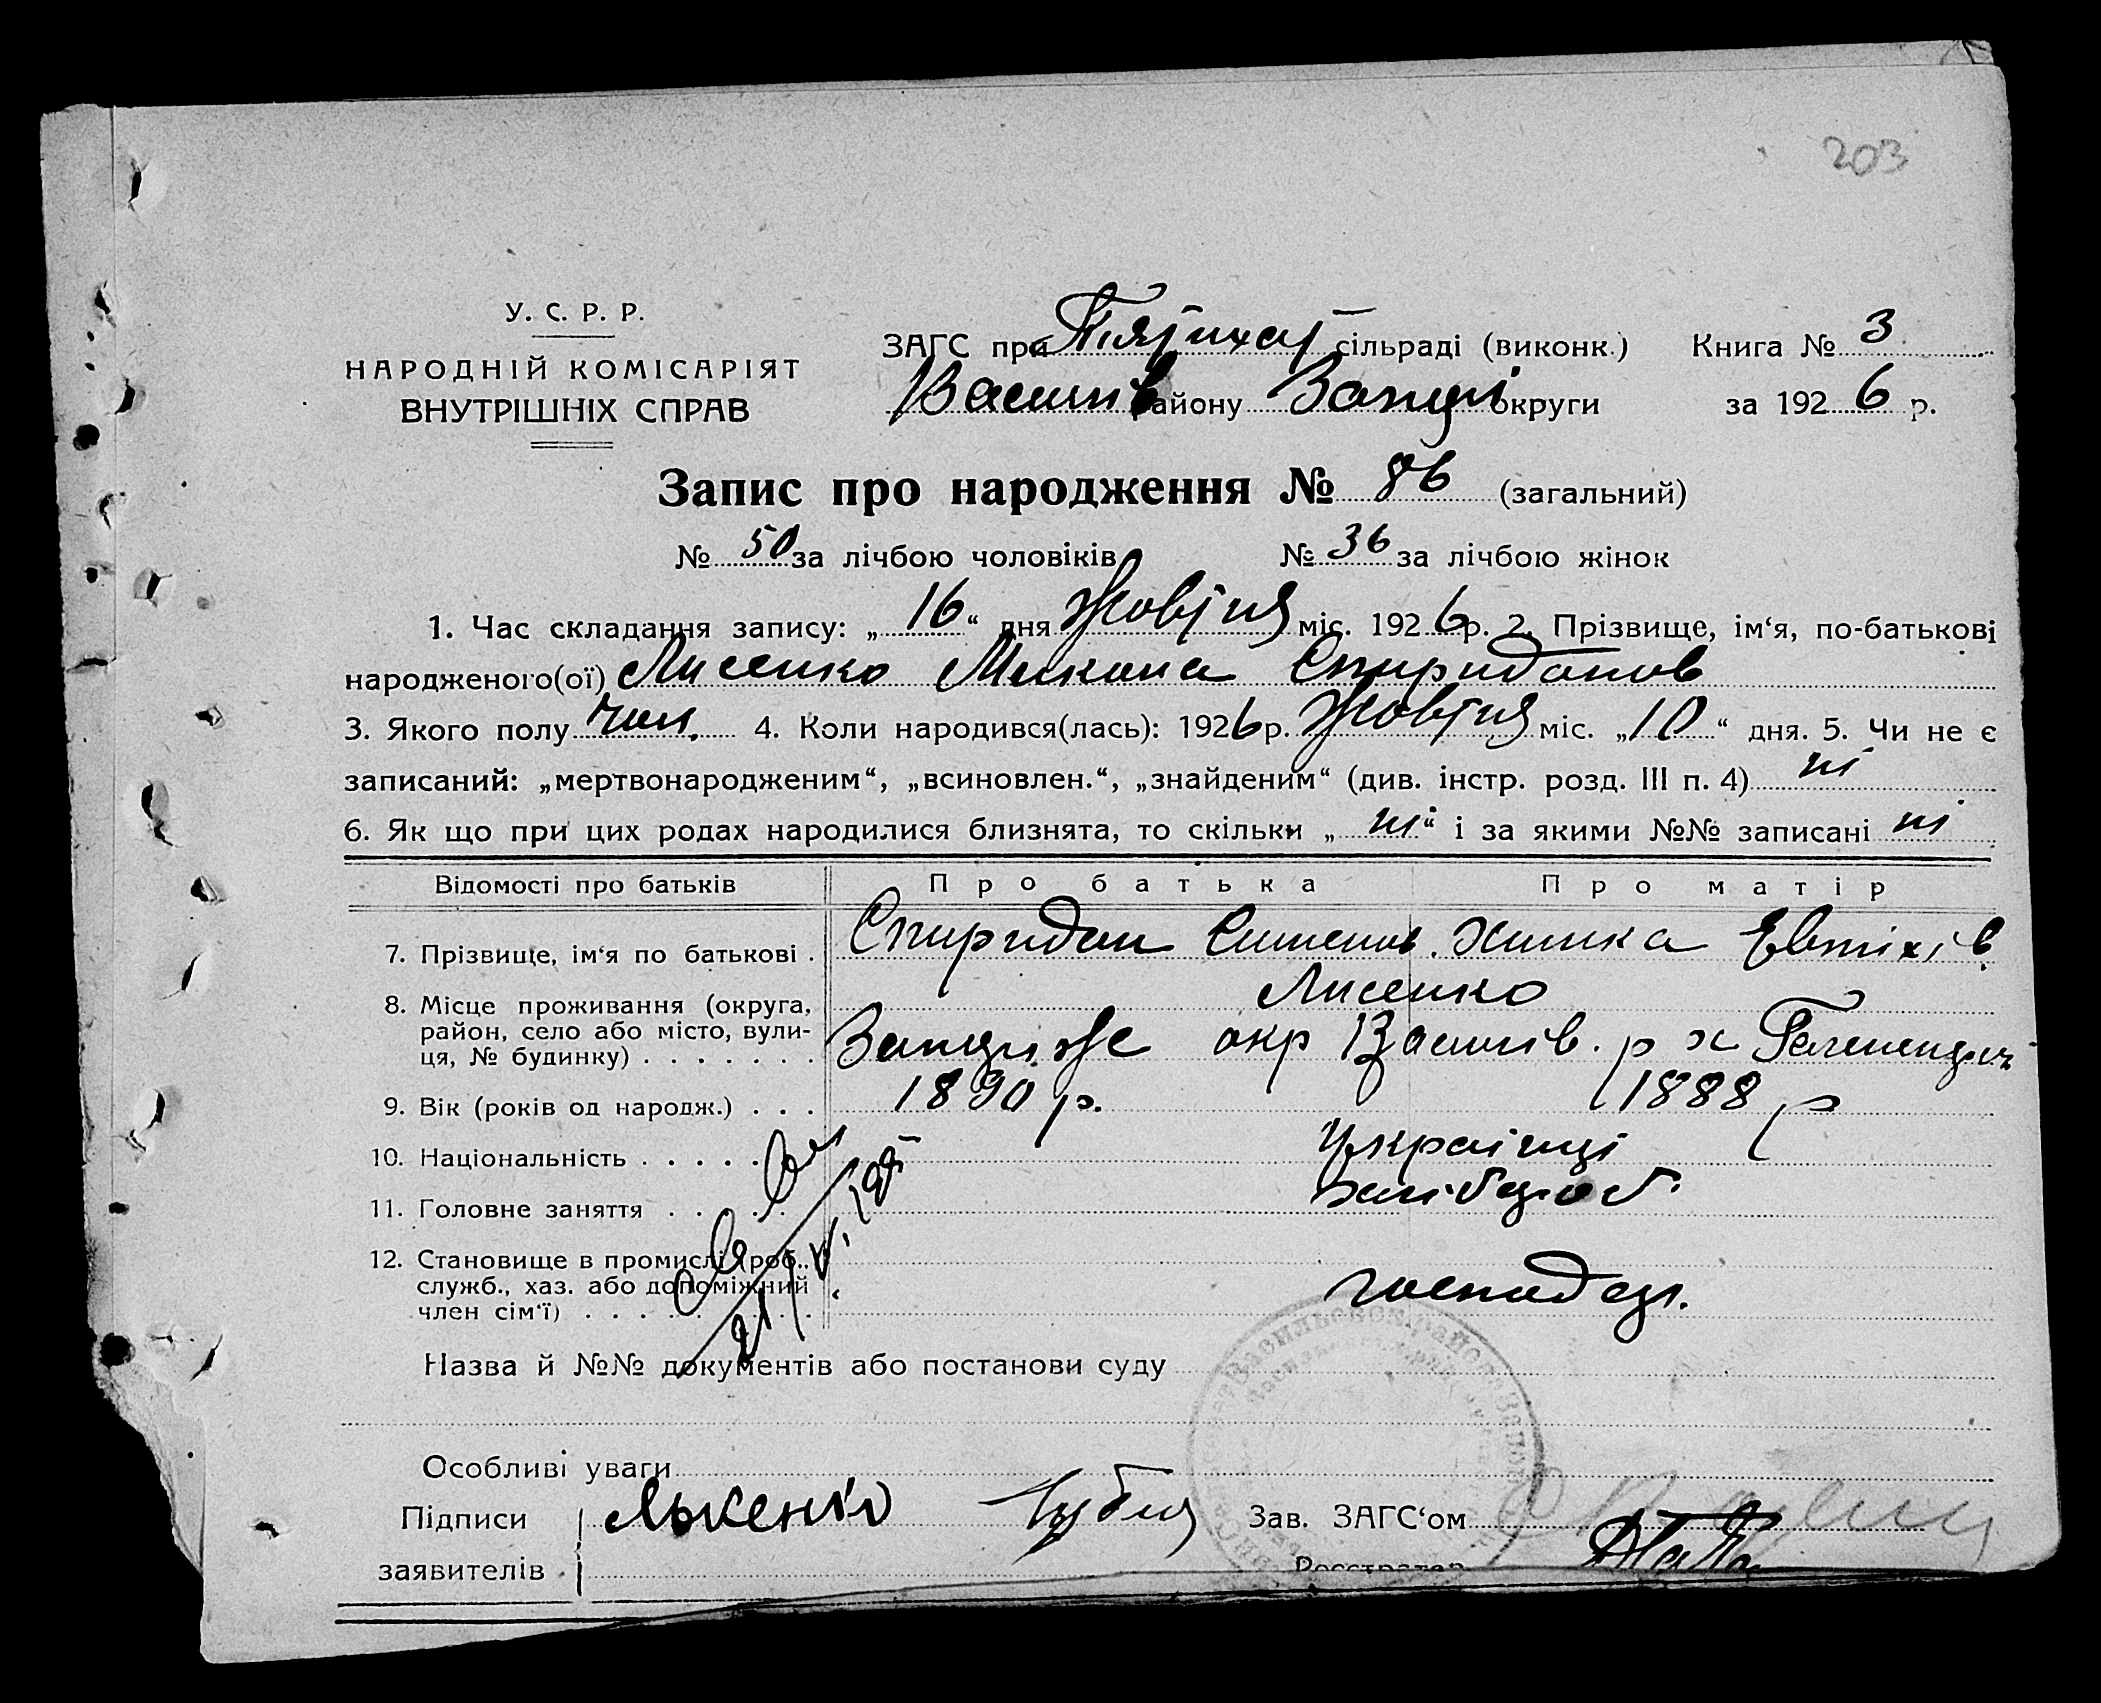 203
У. С. Р. Р.
НАРОДНІЙ КОМІСАРІЯТ
ВНУТРІШНІХ СПРАВ
ЗАГС при Пятихат сільраді (виконк.) Книга № 3
Василів району Запорі округи за 1926 р.
Запис про народження № 86 (загальний)
№ 50 за лічбою чоловіків № 36 за лічбою жінок
1. Час складання запису: „16“ дня Жовтня міс. 1926 р. 2. Прізвище, ім‘я, по-батькові
народженого(ої) Лисенко Микола Спиридонов
3. Якого полу чол. 4. Коли народився(лась): 1926 р. Жовтня міс. „10“ дня. 5. Чи не є
записаний: „мертвонародженим“, „всиновлен.“, „знайденим“ (див. інстр. розд. III п. 4) ні
6. Як що при цих родах народилися близнята, то скільки „ні“ і за якими №№ записані ні
Відомості про батьків Про батька Про матір
7. Прізвище, ім‘я по батькові . Спиридон Симонов. Химка Евтіхіїв
Лисенко
8. Місце проживання (округа,
район, село або місто, вули-
ця, № будинку) . . . . . . . Запоріже окр Василів. р х
9. Вік (років од народж.) . . . 1890 р. 1888 р
10. Національність . . . . . Українці
11. Головне заняття . . . . . хлібороб.
12. Становище в промислі (роб.,
служб., хаз. або допоміжний
член сім‘ї) . . . . . . . . . господар.
Назва й №№ документів або постанови суду
Особливі уваги
Підписи
заявителів
Зав. ЗАГС‘ом
Реєстратор